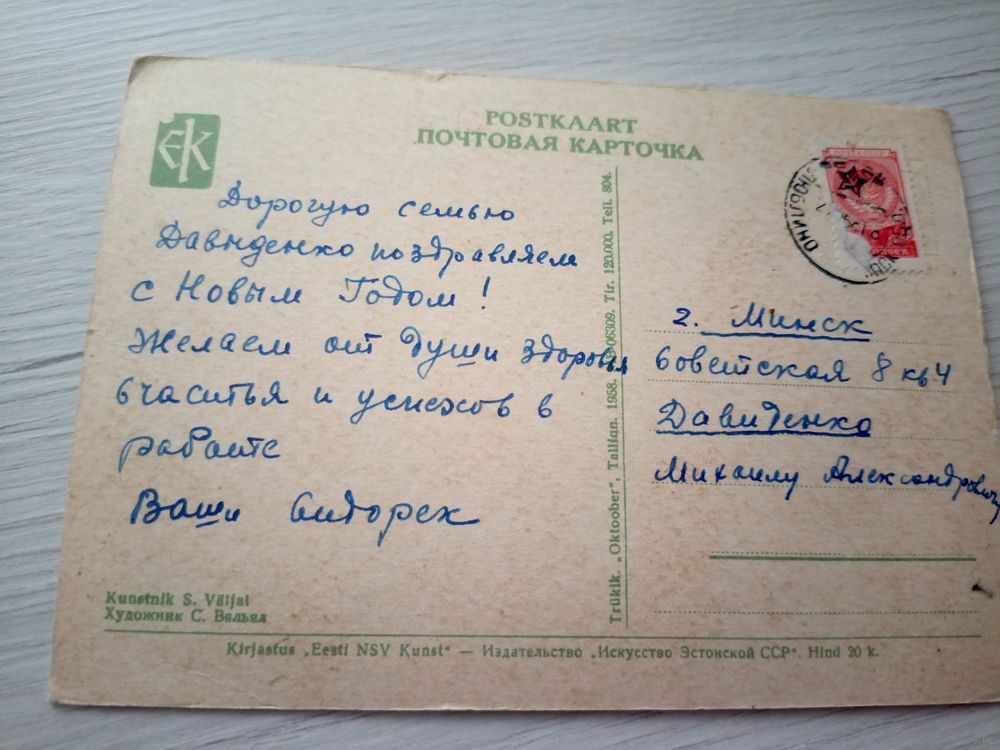 EK
POSTKAART
ПОЧТОВАЯ КАРТОЧКА
Дорогую семью
Давиденко поздравляем
с Новым Годом!
Желаем от души здоровья
счастья и успехов в
работе
Ваши Сидорек
г. Минск
Советская 8 кв 4
Давиденко
Михаилу Александровичу
Kunstnik S. Väljal
Художник С. Вяльял
Trükik. „Oktoober“, Tallinn. 1958. 06309. Tir. 120.000. Tell. 804.
Kirjastus „Eesti NSV Kunst“ — Издательство „Искусство Эстонской ССР“. Hind 20 k.